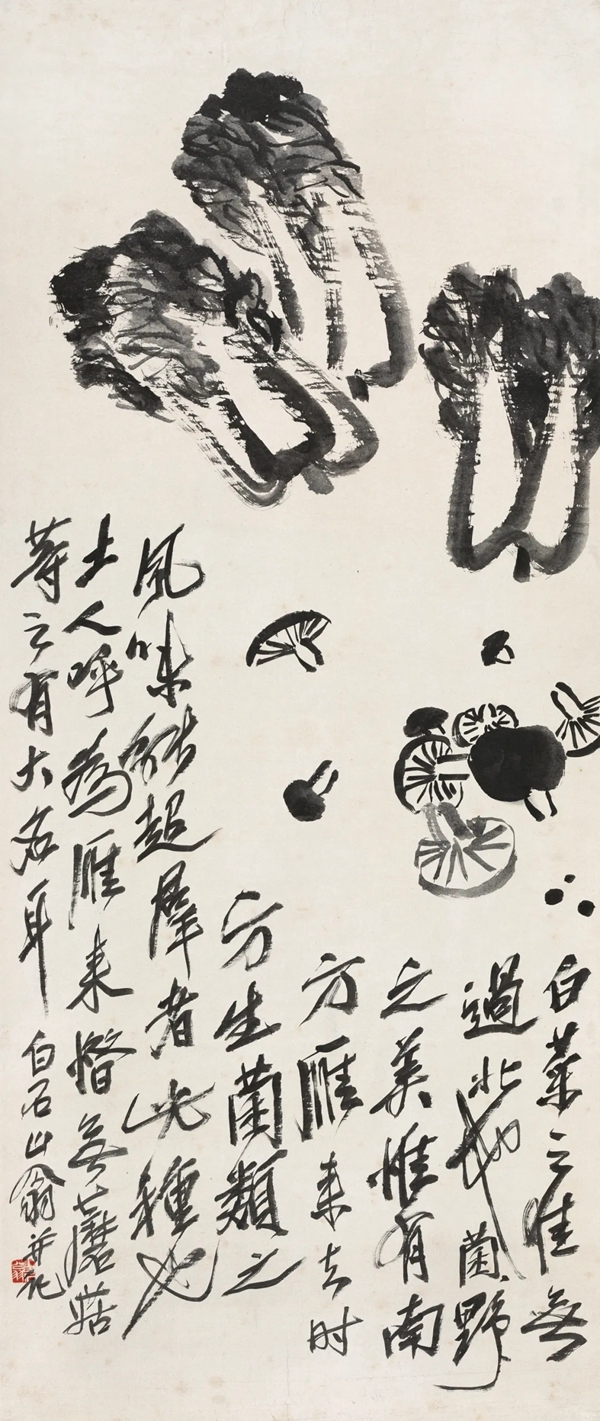 白菜之佳無
過北地菌野
之美惟有南
方雁来去时
方生菌類之
風味能超羣者此種也
土人呼為雁来惜無蘑菇
等之有大名耳
白石山翁并